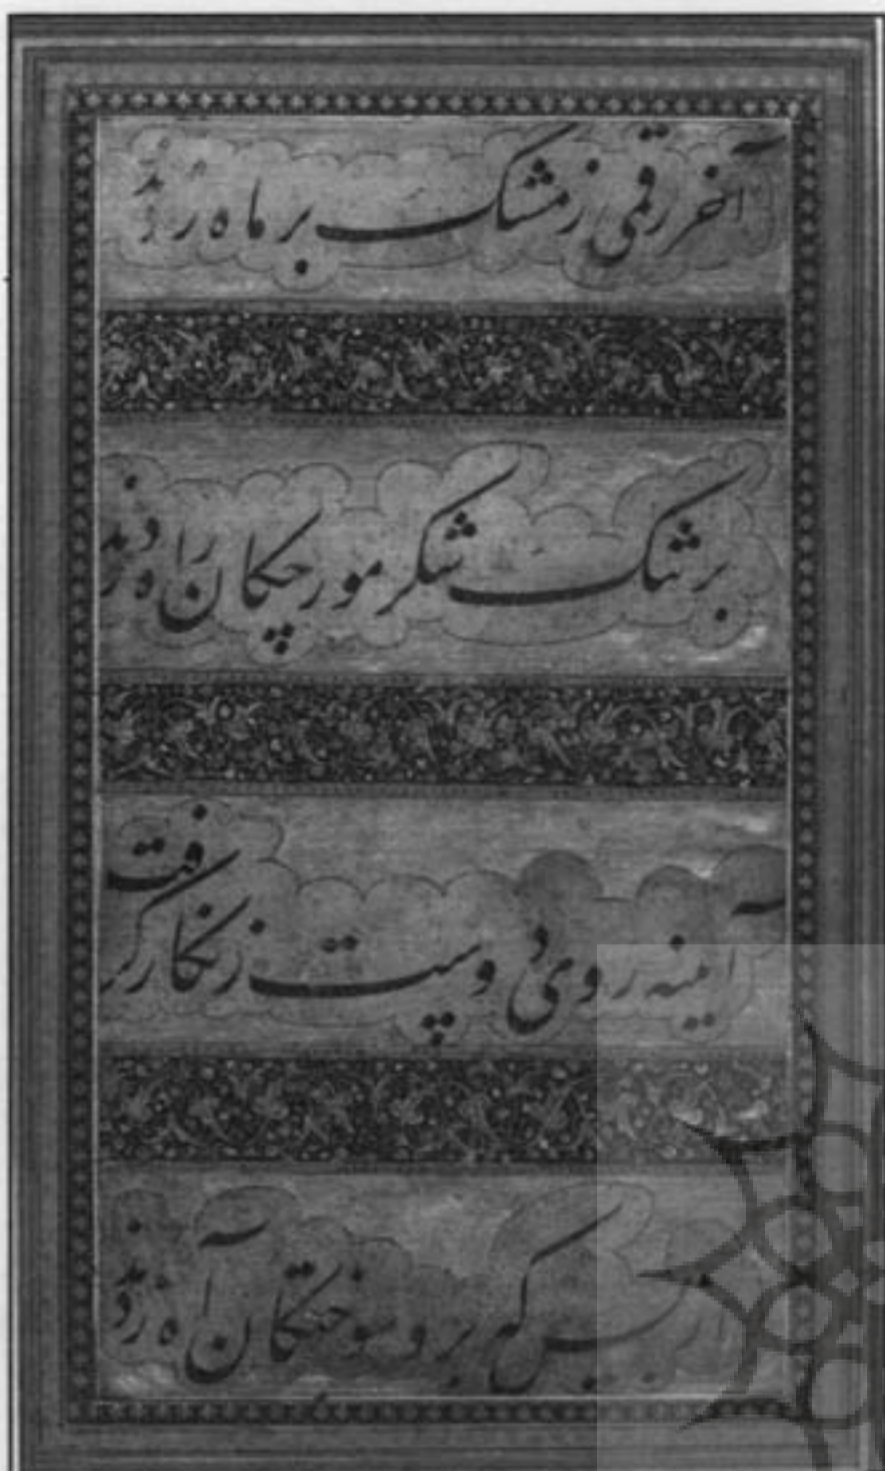 آخر رقمی ز مشک بر ماه زدند
بر تنک شکر مورچکان راه زدند
آیینه روی دوست زنکار کرفت
از بس که برو سوختکان آه زدند